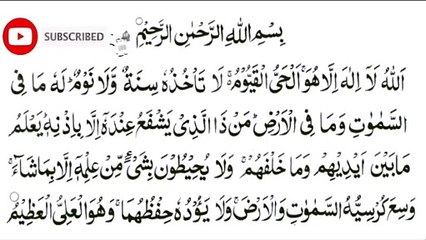 SUBSCRIBED
بِسْمِ اللهِ الرَّحْمٰنِ الرَّحِيْمِ
اَللهُ لَاۤ اِلٰهَ اِلَّا هُوَۚ اَلْحَىُّ الْقَيُّوْمُ ۚ لَا تَاْخُذُهٗ سِنَةٌ وَّلَا نَوْمٌ ؕ لَهٗ مَا فِى
السَّمٰوٰتِ وَمَا فِى الْاَرْضِ ؕ مَنْ ذَا الَّذِىْ يَشْفَعُ عِنْدَهٗۤ اِلَّا بِاِذْنِهٖ ؕ يَعْلَمُ
مَا بَيْنَ اَيْدِيْهِمْ وَمَا خَلْفَهُمْ ۚ وَلَا يُحِيْطُوْنَ بِشَىْءٍ مِّنْ عِلْمِهٖۤ اِلَّا بِمَا شَآءَ ۚ
وَسِعَ كُرْسِيُّهُ السَّمٰوٰتِ وَالْاَرْضَ ۚ وَلَا يَـُٔوْدُهٗ حِفْظُهُمَا ۚ وَهُوَ الْعَلِىُّ الْعَظِيْمُ